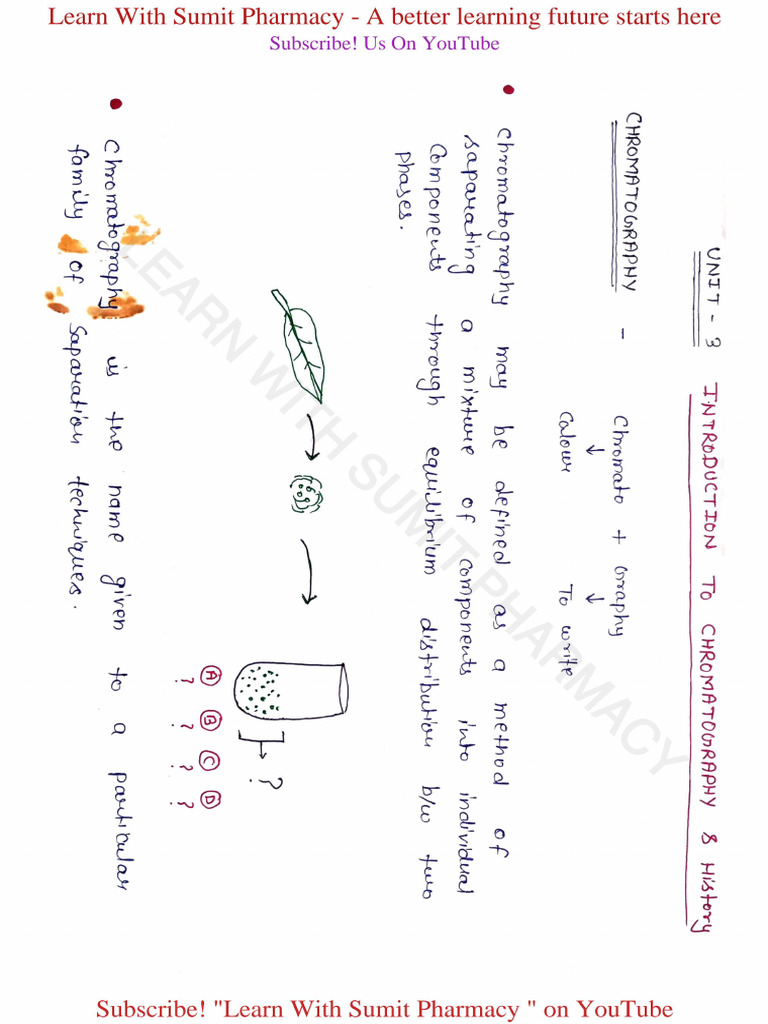 Learn With Sumit Pharmacy - A better learning future starts here
Subscribe! Us On YouTube
UNIT - 3 INTRODUCTION TO CHROMATOGRAPHY & History
CHROMATOGRAPHY - Chromato + Graphy
↓ ↓
Colour To write
• Chromatography may be defined as a method of
saparating a mixture of components into individual
Components through equilibrium distribution b/w two
phases.
?
A B C D
? ? ? ?
• Chromatography is the name given to a particular
family of Saparation techniques.
LEARN WITH SUMIT PHARMACY
Subscribe! "Learn With Sumit Pharmacy " on YouTube